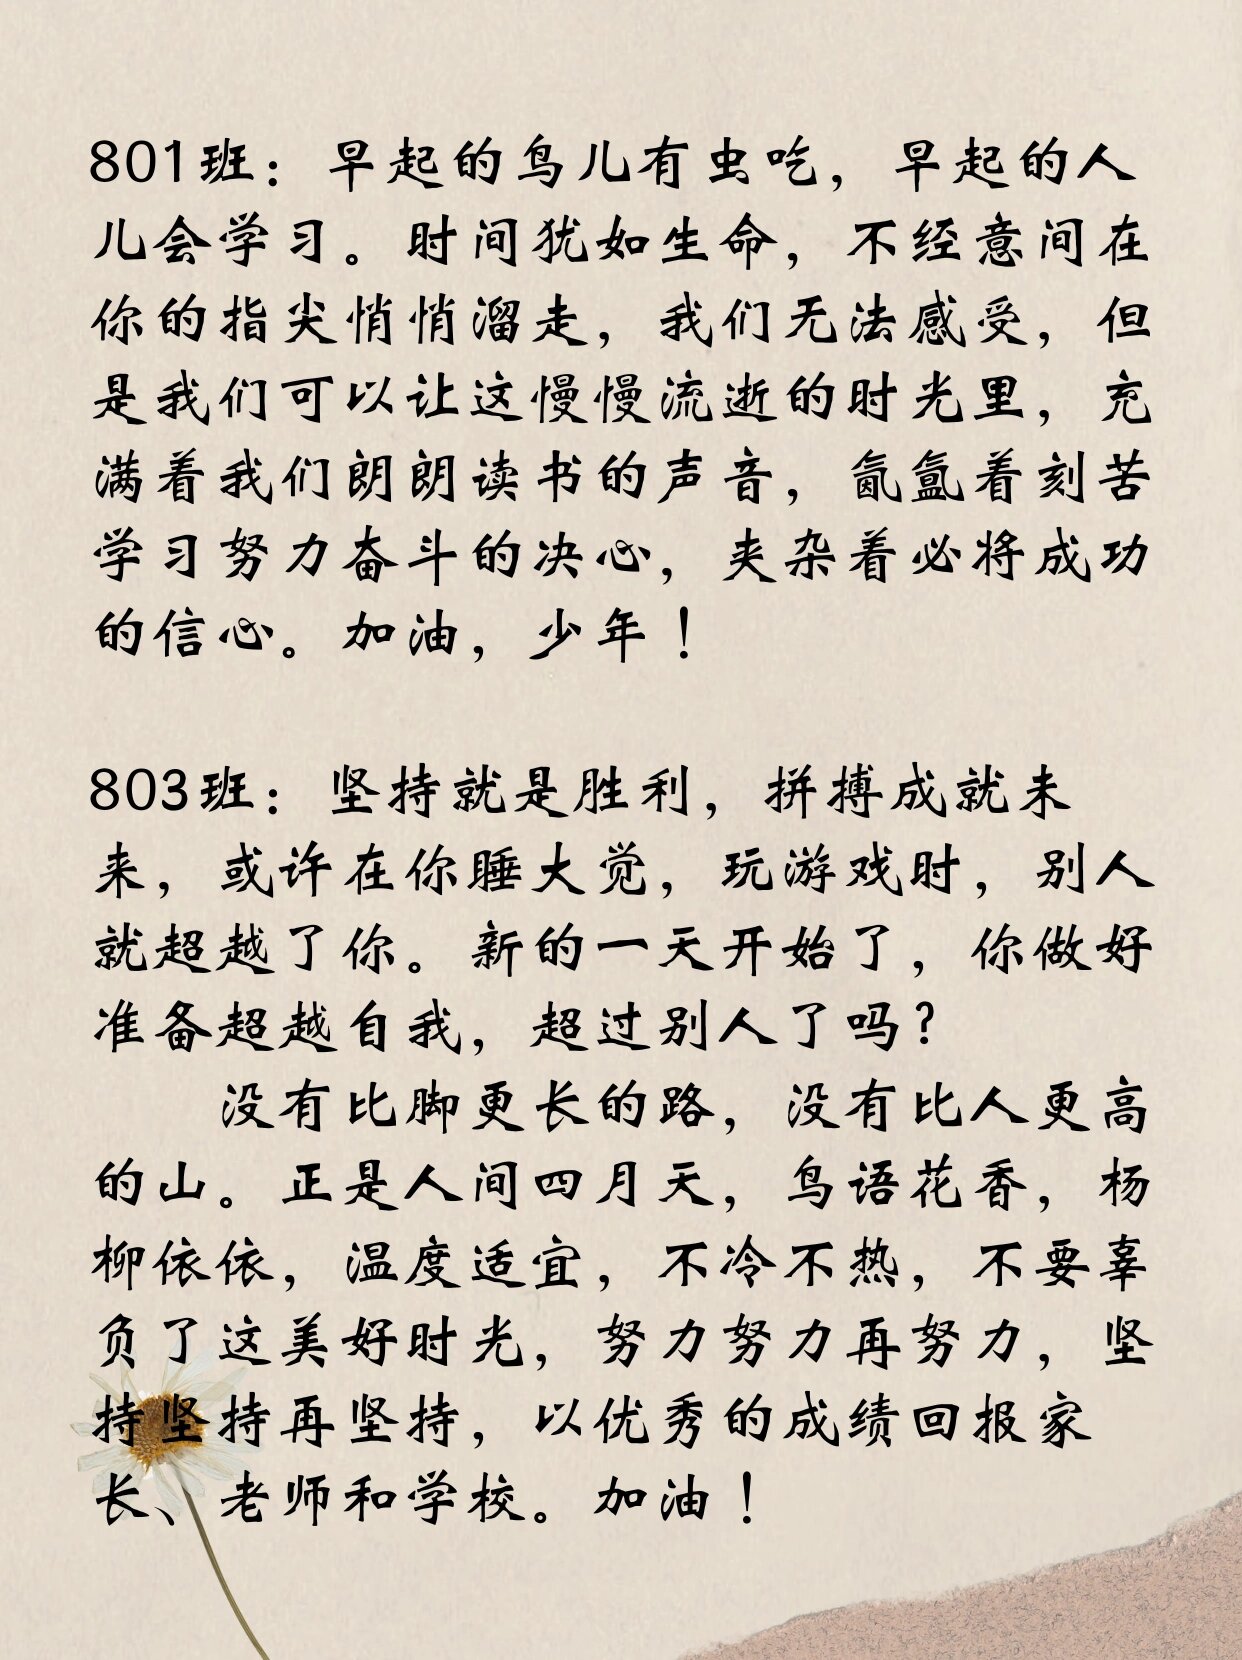 801班：早起的鸟儿有虫吃，早起的人
儿会学习。时间犹如生命，不经意间在
你的指尖悄悄溜走，我们无法感受，但
是我们可以让这慢慢流逝的时光里，充
满着我们朗朗读书的声音，氤氲着刻苦
学习努力奋斗的决心，夹杂着必将成功
的信心。加油，少年！
803班：坚持就是胜利，拼搏成就未
来，或许在你睡大觉，玩游戏时，别人
就超越了你。新的一天开始了，你做好
准备超越自我，超过别人了吗？
没有比脚更长的路，没有比人更高
的山。正是人间四月天，鸟语花香，杨
柳依依，温度适宜，不冷不热，不要辜
负了这美好时光，努力努力再努力，坚
持坚持再坚持，以优秀的成绩回报家
长、老师和学校。加油！